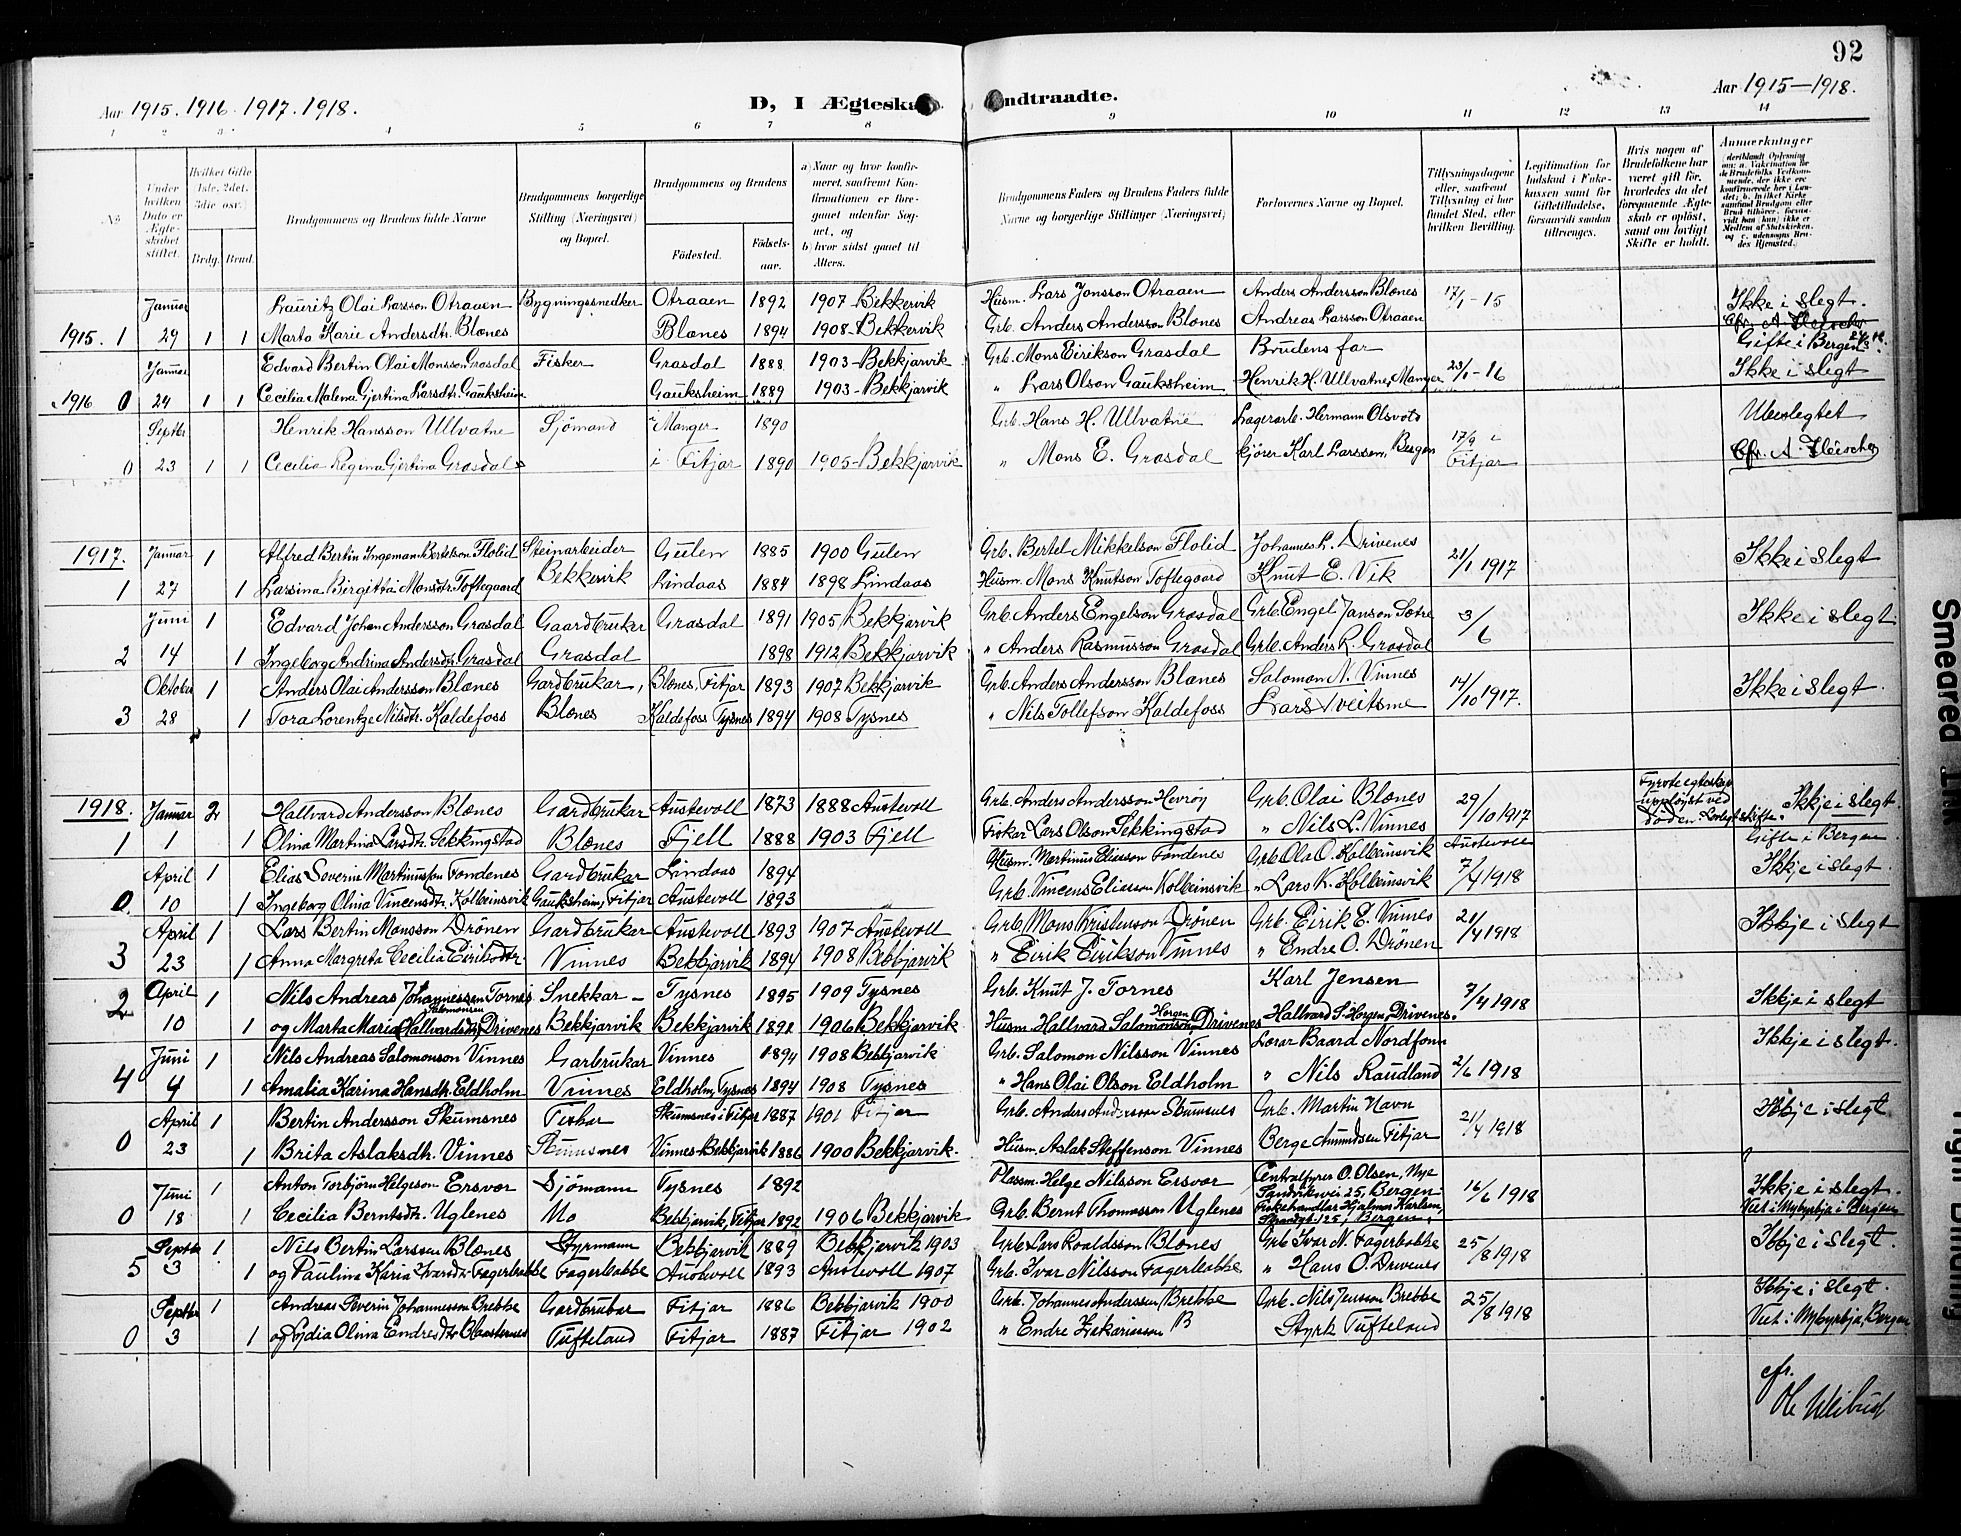 92
Aar 1915. 1916. 1917. 1918.
D, I Ægteska
ndtraadte.
Aar 1915—1918.
1 2 3 4 5 6 7 8 9 10 11 12 13 14
No
Under hvilken Dato er Ægteskabet stiftet.
Hvilket Gifte 1ste, 2det, 3die osv.)
Brdg. Brud.
Brudgommens og Brudens fulde Navne
Brudgommens borgerlige Stilling (Næringsvei) og Bopæl.
Brudgommens og Brudens
Fødested.
Fødsels-aar.
a) Naar og hvor konfirmeret, saafremt Konfirmationen er foregaaet udenfor Sognet, og
b) hvor sidst gaaet til Alters.
Brudgommens Faders og Brudens Faders fulde Navne og borgerlige Stillinger (Næringsvei)
Forlovernes Navne og Bopæl.
Tillysningsdagene eller, saafremt Tillysning ei har fundet Sted, efter hvilken Bevilling.
Legitimation for Indskud i Enkekassen samt for Giftetilladelse, forsaavidt saadan tiltrænges.
Hvis nogen af Brudefolkene har været gift før, hvorledes da det foregaaende Ægteskab er opløst, samt om lovligt Skifte er holdt.
Anmerkninger
Januar Lauritz Olai Larsson Otraaen Bygningssnedker Otraaen 1892 1907 - Bekkervik Husm. Lars Jonsson Otraaen Anders Andersson Blænes 17/1 - 15 Ikke i slegt.
1915. 1 29 1 1 Marta Marie Andersdtr. Blænes Blænes 1894 1908 - Bekkervik Grb. Anders Andersson Blænes Andreas Larsson Otraaen Cfr. A. Fleischer
Januar Edvard Bertin Olai Monsson Grasdal Fisker Grasdal 1888 1903 - Bekkjarvik Grb. Mons Eirikson Grasdal Brudens far 23/1 - 16 Gifte i Bergen
Ikke i slegt
1916 0 24 1 1 Cecilia Malena Gjertina Larsdtr. Gauksheim Gauksheim 1889 1903 - Bekkjarvik " Lars Olson Gauksheim Henrik H. Ullvatne, Manger
Septbr Henrik Hansson Ullvatne Sjömand i Manger 1890 Grb. Hans H. Ullvatne Lagerarb. Hermann Olsvold 17/9 i Fitjar Ubeslegtet
0 23 1 1 Cecilia Regina Gjertina Grasdal i Fitjar 1890 1905 - Bekkjarvik " Mons E. Grasdal kjører Karl Larssen, Bergen Cfr. A. Fleischer
1917. Januar 1 Alfred Bertin Ingeman Bertelson Flolid Steinarbeider Gulen 1885 1900 Gulen Grb. Bertel Mikkelson Flolid Johannes L. Drivenes 21/1 1917 Ikke i slegt
1 27 1 Larsina Bergitta Monsdtr. Toftegaard Bekkervik Lindaas 1884 1898 Lindaas Husm. Mons Knutson Toftegaard Knut E. Vik
Juni 1 Edvard Johan Andersson Grasdal Gaardbruker Grasdal 1891 1905 Bekkjarvik Grb. Anders Engelson Grasdal Grb. Engel Janson Lotre 3/6 Ikke i slegt.
2 14 1 Ingeborg Andrina Andersdtr. Grasdal Grasdal 1898 1912 Bekkjarvik " Anders Rasmusson Grasdal Grb. Anders R. Grasdal
Oktober 1 Anders Olai Andersson Blænes Gardbrukar, Blænes, Fitjar 1893 1907 Bekkjarvik Grb. Anders Andersson Blænes Salomon N. Vinnes 14/10 1917. Ikke i slegt.
3 28 1 Tora Lorentze Nilsdtr. Kaldefoss Blænes Kaldefoss Tysnes 1894 1908 Tysnes " Nils Tollefson Kaldefoss Lars Tveitsme
1918. Januar 2 Hallvard Andersson Blænes Gardbrukar Austevoll 1873 1888 Austevoll Grb. Anders Andersson Hevrøy Grb. Olai Blænes 29/10 1917 Fyrste egteskap upployst ved døden. Lovlegt skifte. Ikkje i slegt
1 1 1 Olina Martina Larsdtr. Sekkingstad Blænes Fjell 1888 1903 Fjell Fiskar Lars Olson Sekkingstad " Nils L. Vinnes
April 1 Elias Severin Martinusson Fondenes Gardbrukar Lindaas 1894 Husm. Martinus Eliasson Fondenes Grb. Ola O. Kolbeinsvik Austevoll 7/4 1918 Gifte i Bergen
Ikkje i slegt.
0. 10 1 Ingeborg Olina Vincensdtr. Kolbeinsvik Gauksheim, Fitjar Austevoll 1893 Grb. Vincens Eliasson Kolbeinsvik " Lars K. Kolbeinsvik
April 1 Lars Bertin Monsson Drönen Gardbrukar Austevoll 1893 1907 Austevoll Grb. Mons Kristenson Drönen Grb. Eirik E. Vinnes 21/4 1918 Ikkje i slegt
3 23 1 Anna Margreta Cecilia Eiriksdtr Vinnes Bekkjarvik 1894 1908 Bekkjarvik " Eirik Eirikson Vinnes " Endre O. Drönen
2 April 1 Nils Andreas Johannessen Tornes Snekkar - Tysnes 1895 1909 Tysnes Grb. Knut J. Tornes Karl Jensen 7/4 1918 Ikkje i slegt
10 1 og Marta Maria Hallvardsdtr. Salomonsen Drivenes Bekkjarvik Bekkjarvik 1892 1906 Bekkjarvik Husm. Hallvard Salomonson Horgen Drivenes Hallvard S. Horgen, Drivenes.
Juni 1 Nils Andreas Salomonson Vinnes Garbrukar Vinnes 1894 1908 Bekkjarvik Grb. Salomon Nilsson Vinnes Lærar Baard Nordfonn 2/6 1918 Ikkje i slegt.
4 4 1 Amalia Karina Hansdtr. Eldholm Vinnes Eldholm, Tysnes 1894 1908 Tysnes " Hans Olai Olson Eldholm " Nils Raudland
April 1 Bertin Andersson Skumsnes Fiskar Skumsnes i Fitjar 1887 1901 Fitjar Grb. Anders Andersson Skumsnes Grb. Martin Havn 21/4 1918 Ikkje i slegt
0 23 1 Brita Aslaksdtr. Vinnes Skumsnes Vinnes - Bekkjarvik 1886 1900 Bekkjarvik. Husm. Aslak Steffenson Vinnes Berge Amundsen Fitjar
Juni 1 Anton Torbjörn Helgeson Ersvær Sjömann Tysnes 1892 Plassm. Helge Nilsson Ersvær Centralfyrer O. Olsen, Nye Sandviksvei 25, Bergen 16/6 1918 Ikkje i slegt.
0 18 1 Cecilia Berntsdtr. Uglenes Mo Bekkjarvik, Fitjar 1892 1906 Bekkjarvik Grb. Bernt Thomasson Uglenes Fiskehandlar Hjalmar Karlsen, Strandgt 125, Bergen. Viet i Nykyrkja i Bergen
Septbr 1 Nils Bertin Larssen Blænes Styrmann Bekkjarvik 1889 Bekkjarvik 1903 Grb. Lars Roaldsson Blænes Grb. Ivar N. Fagerbakke 25/8 1918 Ikkje i slegt.
5 3 1 og Paulina Karia Ivarsdtr. Fagerbakke Fagerbakke Austevoll 1893 Austevoll 1907 Grb. Ivar Nilsson Fagerbakke " Hans O. Drivenes
Septbr 1 Andreas Severin Johannesson Brekke Gardbrukar Fitjar 1886 Bekkjarvik 1900 Grb. Johannes Andersson Brekke Grb. Nils Jensson Brekke 25/8 1918 Ikkje i slegt.
0 3 1 og Lydia Olina Endresdtr Tufteland Fitjar 1887 Fitjar 1902 " Endre Zakariasson Styrk Tufteland Viet i Nykyrkja, Bergen
cfr.
Smeared Ink
Tight Binding